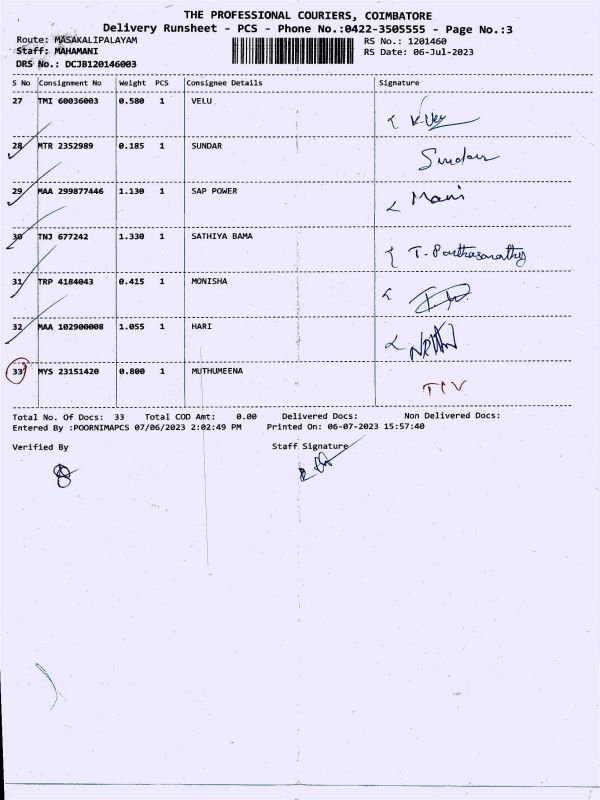 THE PROFESSIONAL COURIERS, COIMBATORE
Delivery Runsheet - PCS - Phone No.:0422-3505555 - Page No.:3
Route: MASAKALIPALAYAM RS No.: 1201460
Staff: MAHAMANI RS Date: 06-Jul-2023
DRS No.: DCJB120146003
S No Consignment No Weight PCS Consignee Details Signature
27 TMI 60036003 0.580 1 VELU
28 MTR 2352989 0.185 1 SUNDAR Sundar
29 MAA 299877446 1.130 1 SAP POWER Mani
30 TNJ 677242 1.330 1 SATHIYA BAMA T. Parthasarathy
31 TRP 4184043 0.415 1 MONISHA
32 MAA 102900008 1.055 1 HARI
33 MYS 23151420 0.800 1 MUTHUMEENA
Total No. Of Docs: 33 Total COD Amt: 0.00 Delivered Docs: Non Delivered Docs:
Entered By :POORNIMAPCS 07/06/2023 2:02:49 PM Printed On: 06-07-2023 15:57:40
Verified By Staff Signature